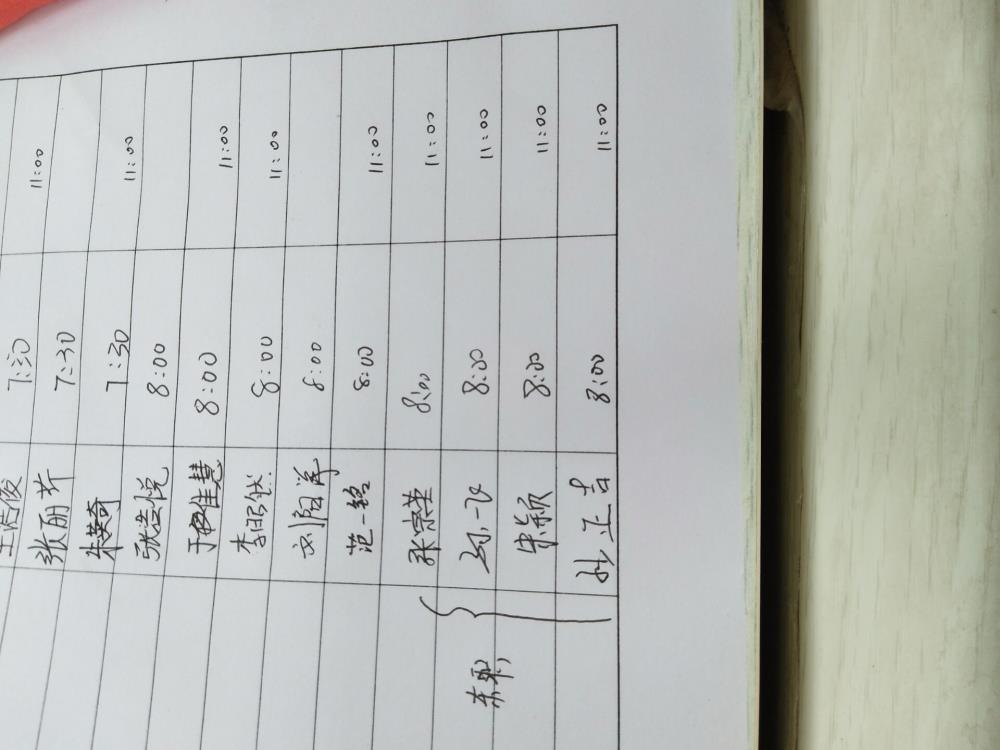 7:30
张丽芹 7:30 11:00
朱英奇 7:30
张浩悦 8:00 11:00
于佳慧 8:00
李昭然 8:00 11:00
刘阳洋 8:00 11:00
范一铭 8:00
张宗奎 8:00 11:00
8:00 11:00
东职 朱颖 8:00 11:00
孙正吉 8:00 11:00
11:00